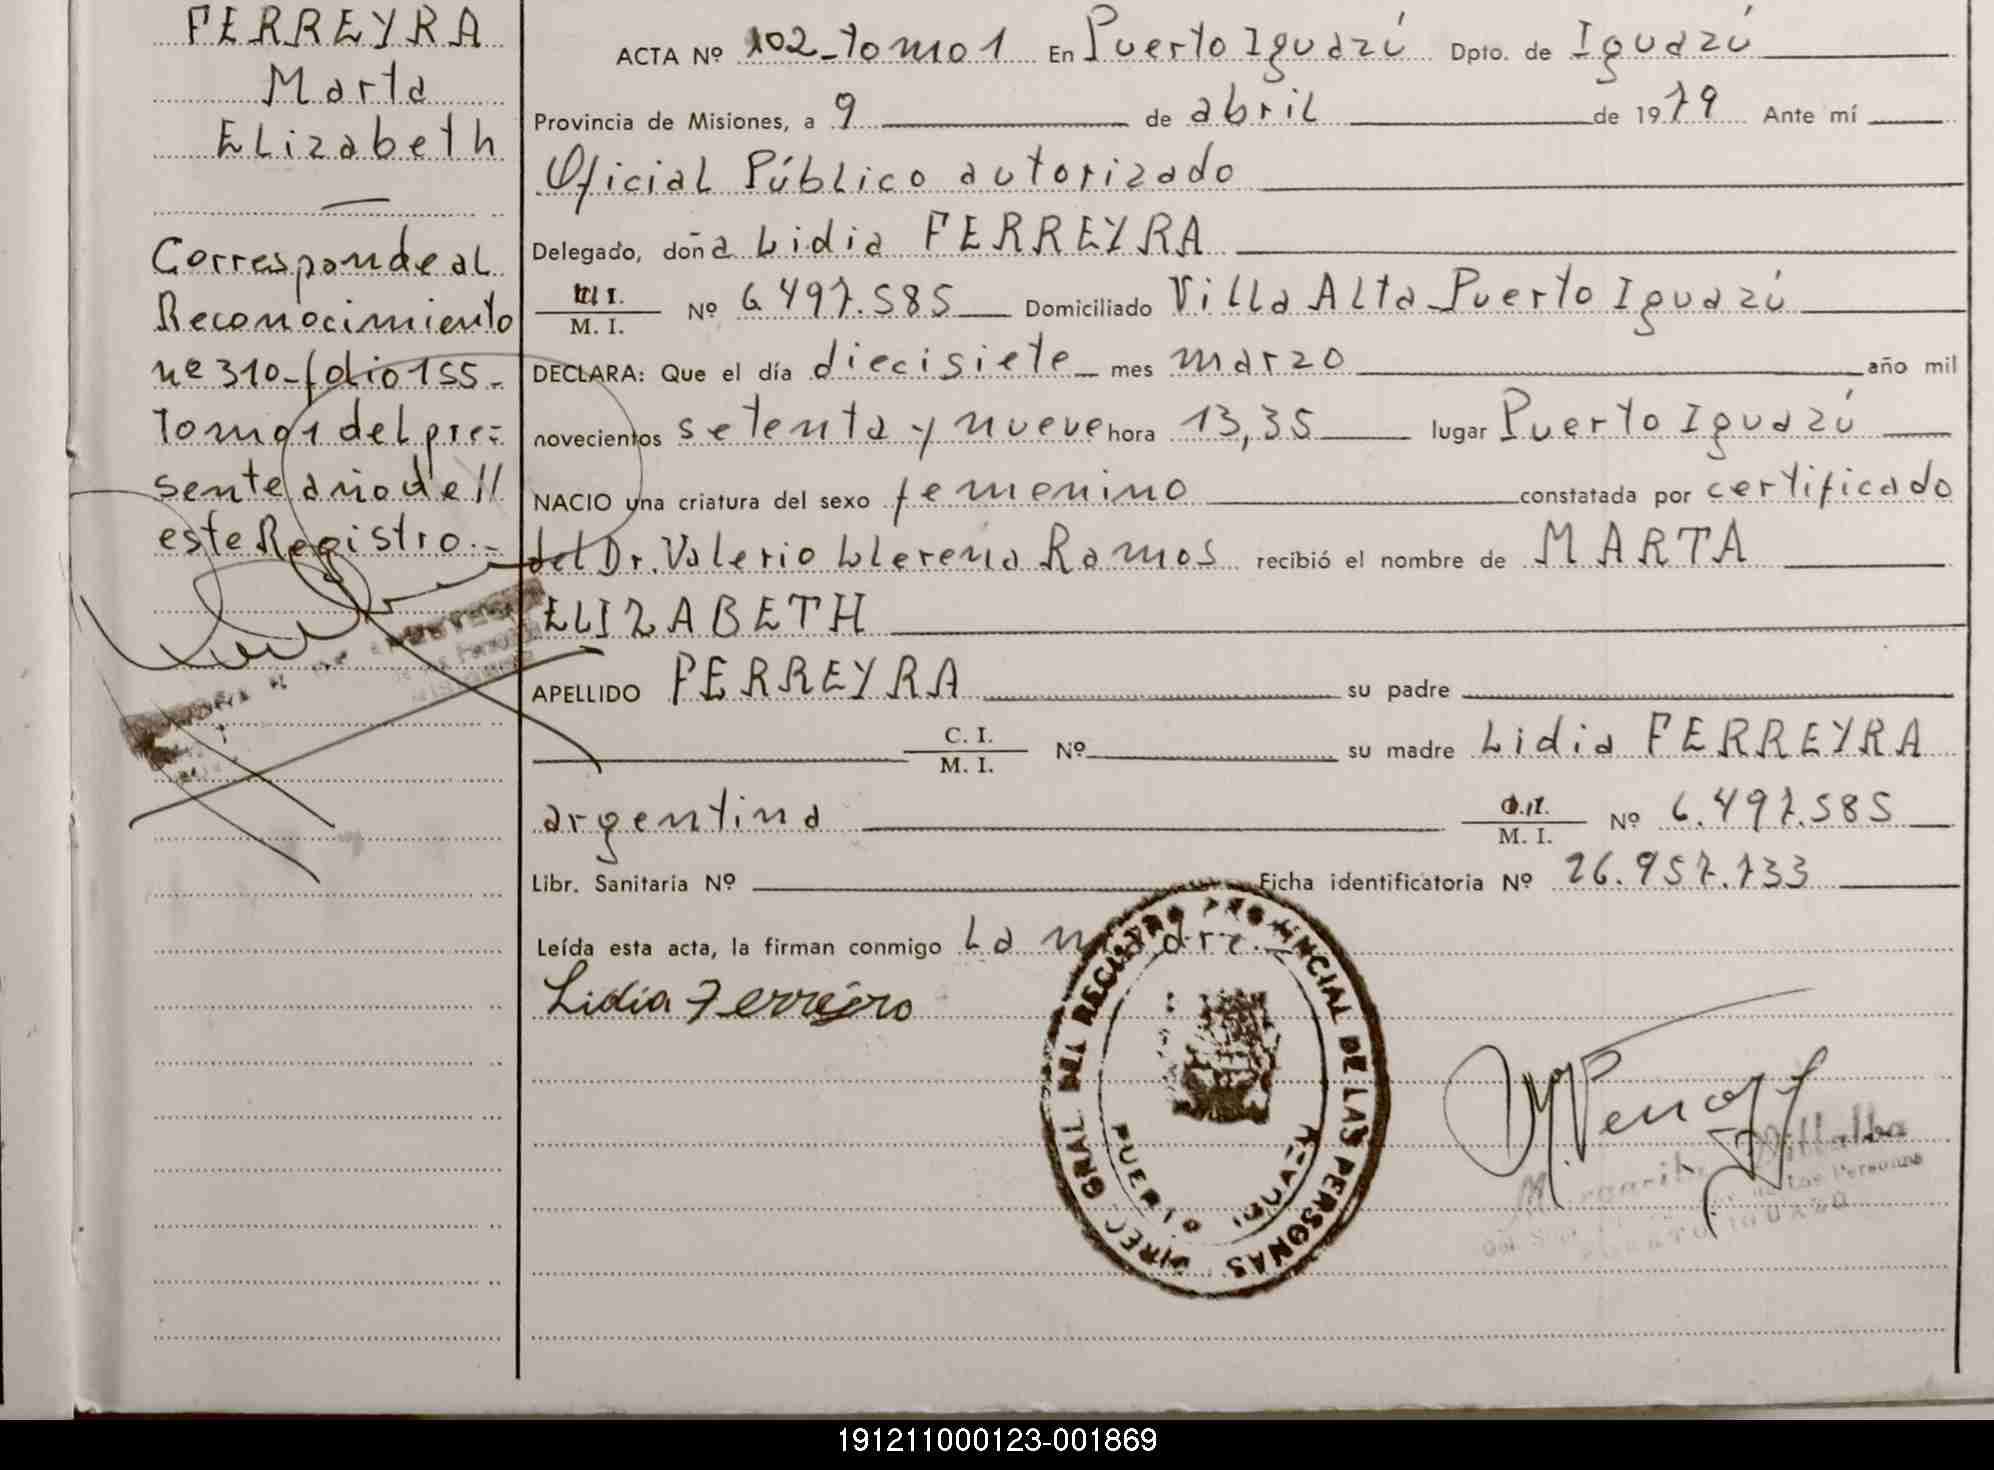 FERREYRA
Marta
Elizabeth
Corresponde al
Reconocimiento
nº 310-folio 155-
Tomo 1 del pre=
sente año de //
este Registro.-
ACTA Nº 102-tomo 1 En Puerto Iguazú Dpto. de Iguazú
Provincia de Misiones, a 9 de abril de 1979 Ante mí
Oficial Público autorizado
Delegado, doña Lidia FERREYRA
M. I. Nº 6.497.585 Domiciliado Villa Alta Puerto Iguazú
DECLARA: Que el día diecisiete mes marzo año mil
novecientos setenta y nueve hora 13,35 lugar Puerto Iguazú
NACIO una criatura del sexo femenino constatada por certificado
del Dr. Valerio Llerena Ramos recibió el nombre de MARTA
ELIZABETH
APELLIDO FERREYRA su padre
C. I.
M. I. Nº su madre Lidia FERREYRA
argentina M. I. Nº 6.497.585
Libr. Sanitaria Nº Ficha identificatoria Nº 26.957.733
Leída esta acta, la firman conmigo La madre.-
Lidia Ferreiro
DIREC. GRAL DEL REGISTRO PROVINCIAL DE LAS PERSONAS
PUERTO IGUAZU
Margarita Villalba
de las Personas
PUERTO IGUAZU
191211000123-001869